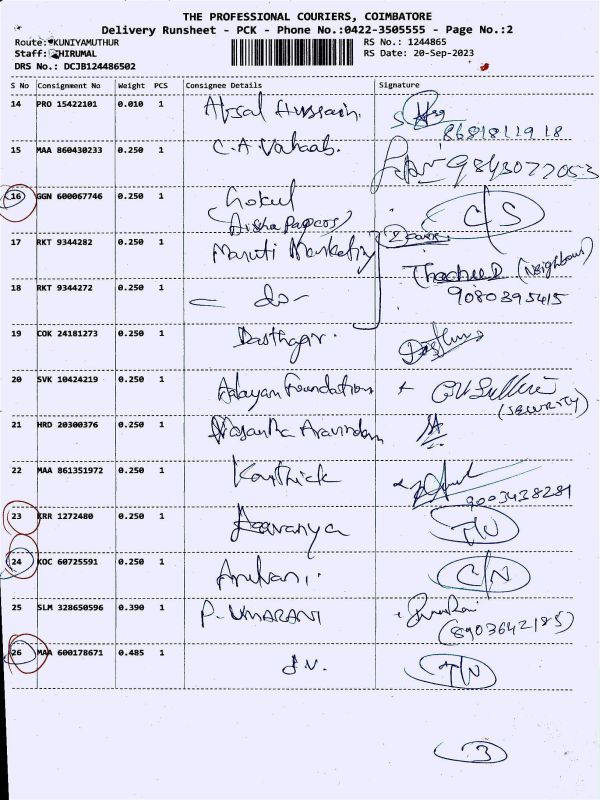 THE PROFESSIONAL COURIERS, COIMBATORE
Delivery Runsheet - PCK - Phone No.:0422-3505555 - Page No.:2
Route: KUNIYAMUTHUR RS No.: 1244865
Staff: THIRUMAL RS Date: 20-Sep-2023
DRS No.: DCJB124486502
S No Consignment No Weight PCS Consignee Details Signature
14 PRO 15422101 0.010 1 Absal Hussain.
8681811918
15 MAA 860430233 0.250 1 C.A Vahaab. 9843077053
16 GGN 600067746 0.250 1 Gokul C/S
Aisha Papers
17 RKT 9344282 0.250 1 Maruti Marketing
(Neighbour)
18 RKT 9344272 0.250 1 - do - 9080395415
19 COK 24181273 0.250 1 Dasthagir.
20 SVK 10424219 0.250 1 Aalayam Foundation
(SECURITY)
21 HRD 20300376 0.250 1 Prasantha Aravindam
22 MAA 861351972 0.250 1 Karthick
9003438281
23 KRR 1272480 0.250 1
24 KOC 60725591 0.250 1 C/N
25 SLM 328650596 0.390 1 P. UMARANI
(8903642185)
26 MAA 600178671 0.485 1 J.V.
3